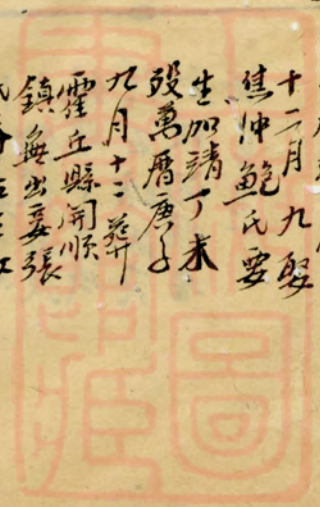 十二月九娶
焦冲鮑氏要
生加靖丁未
殁萬曆庚子
九月十二葬
霍丘縣開順
鎮無出妾張